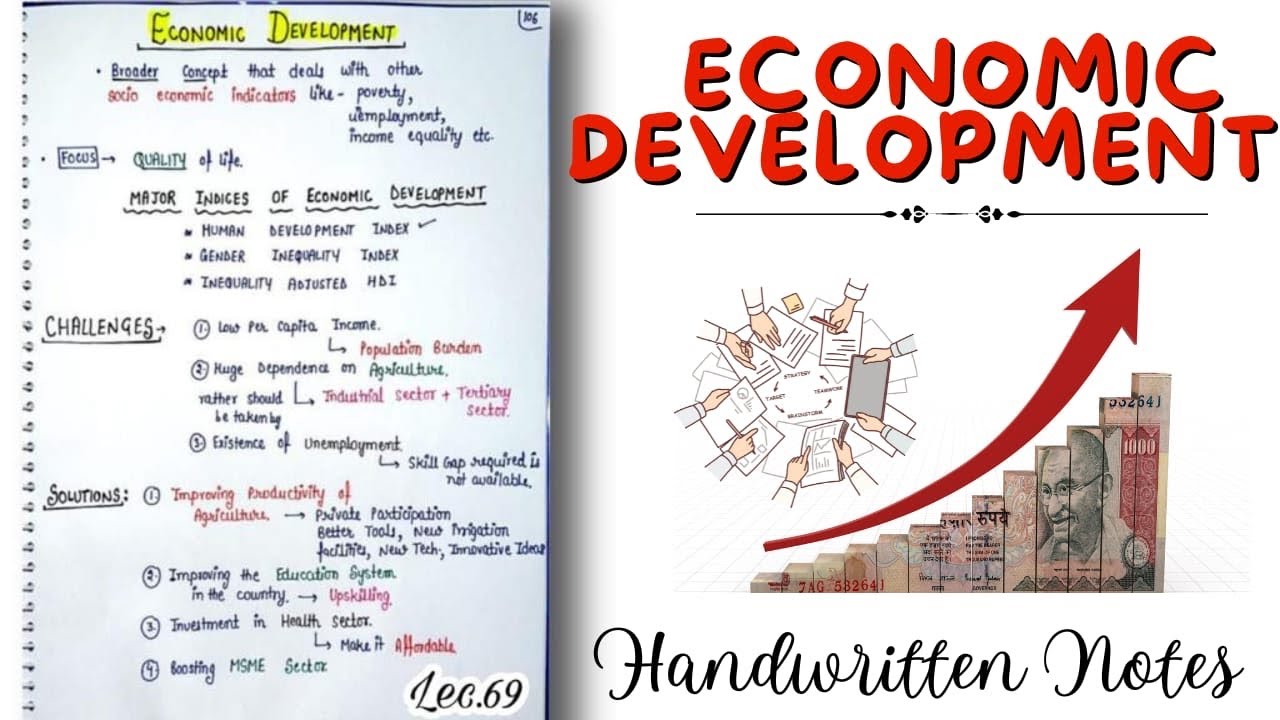 106
ECONOMIC DEVELOPMENT
• Broader Concept that deals with other
socio economic indicators like - poverty,
uemployment,
income equality etc.
• FOCUS → QUALITY of life.
MAJOR INDICES OF ECONOMIC DEVELOPMENT
HUMAN DEVELOPMENT INDEX ✓
GENDER INEQUALITY INDEX
INEQUALITY ADJUSTED HDI
CHALLENGES → ① Low Per Capita Income.
↳ Population Burden
② Huge Dependence on Agriculture.
rather should ↳ Industrial sector + Tertiary
be taken by sector.
③ Existence of Unemployment.
↳ Skill Gap required is
not available.
SOLUTIONS: ① Improving Productivity of
Agriculture. → Private Participation
Better Tools, New Irrigation
facilities, New Tech., Innovative Ideas
② Improving the Education System
in the country. → Upskilling.
③ Investment in Health Sector.
↳ Make it Affordable
④ Boosting MSME Sector
Lec.69
ECONOMIC
DEVELOPMENT
STRATEGY
TARGET TEAMWORK
BRAINSTORM
532641
1000
रुपये
7AG 532641
Handwritten Notes